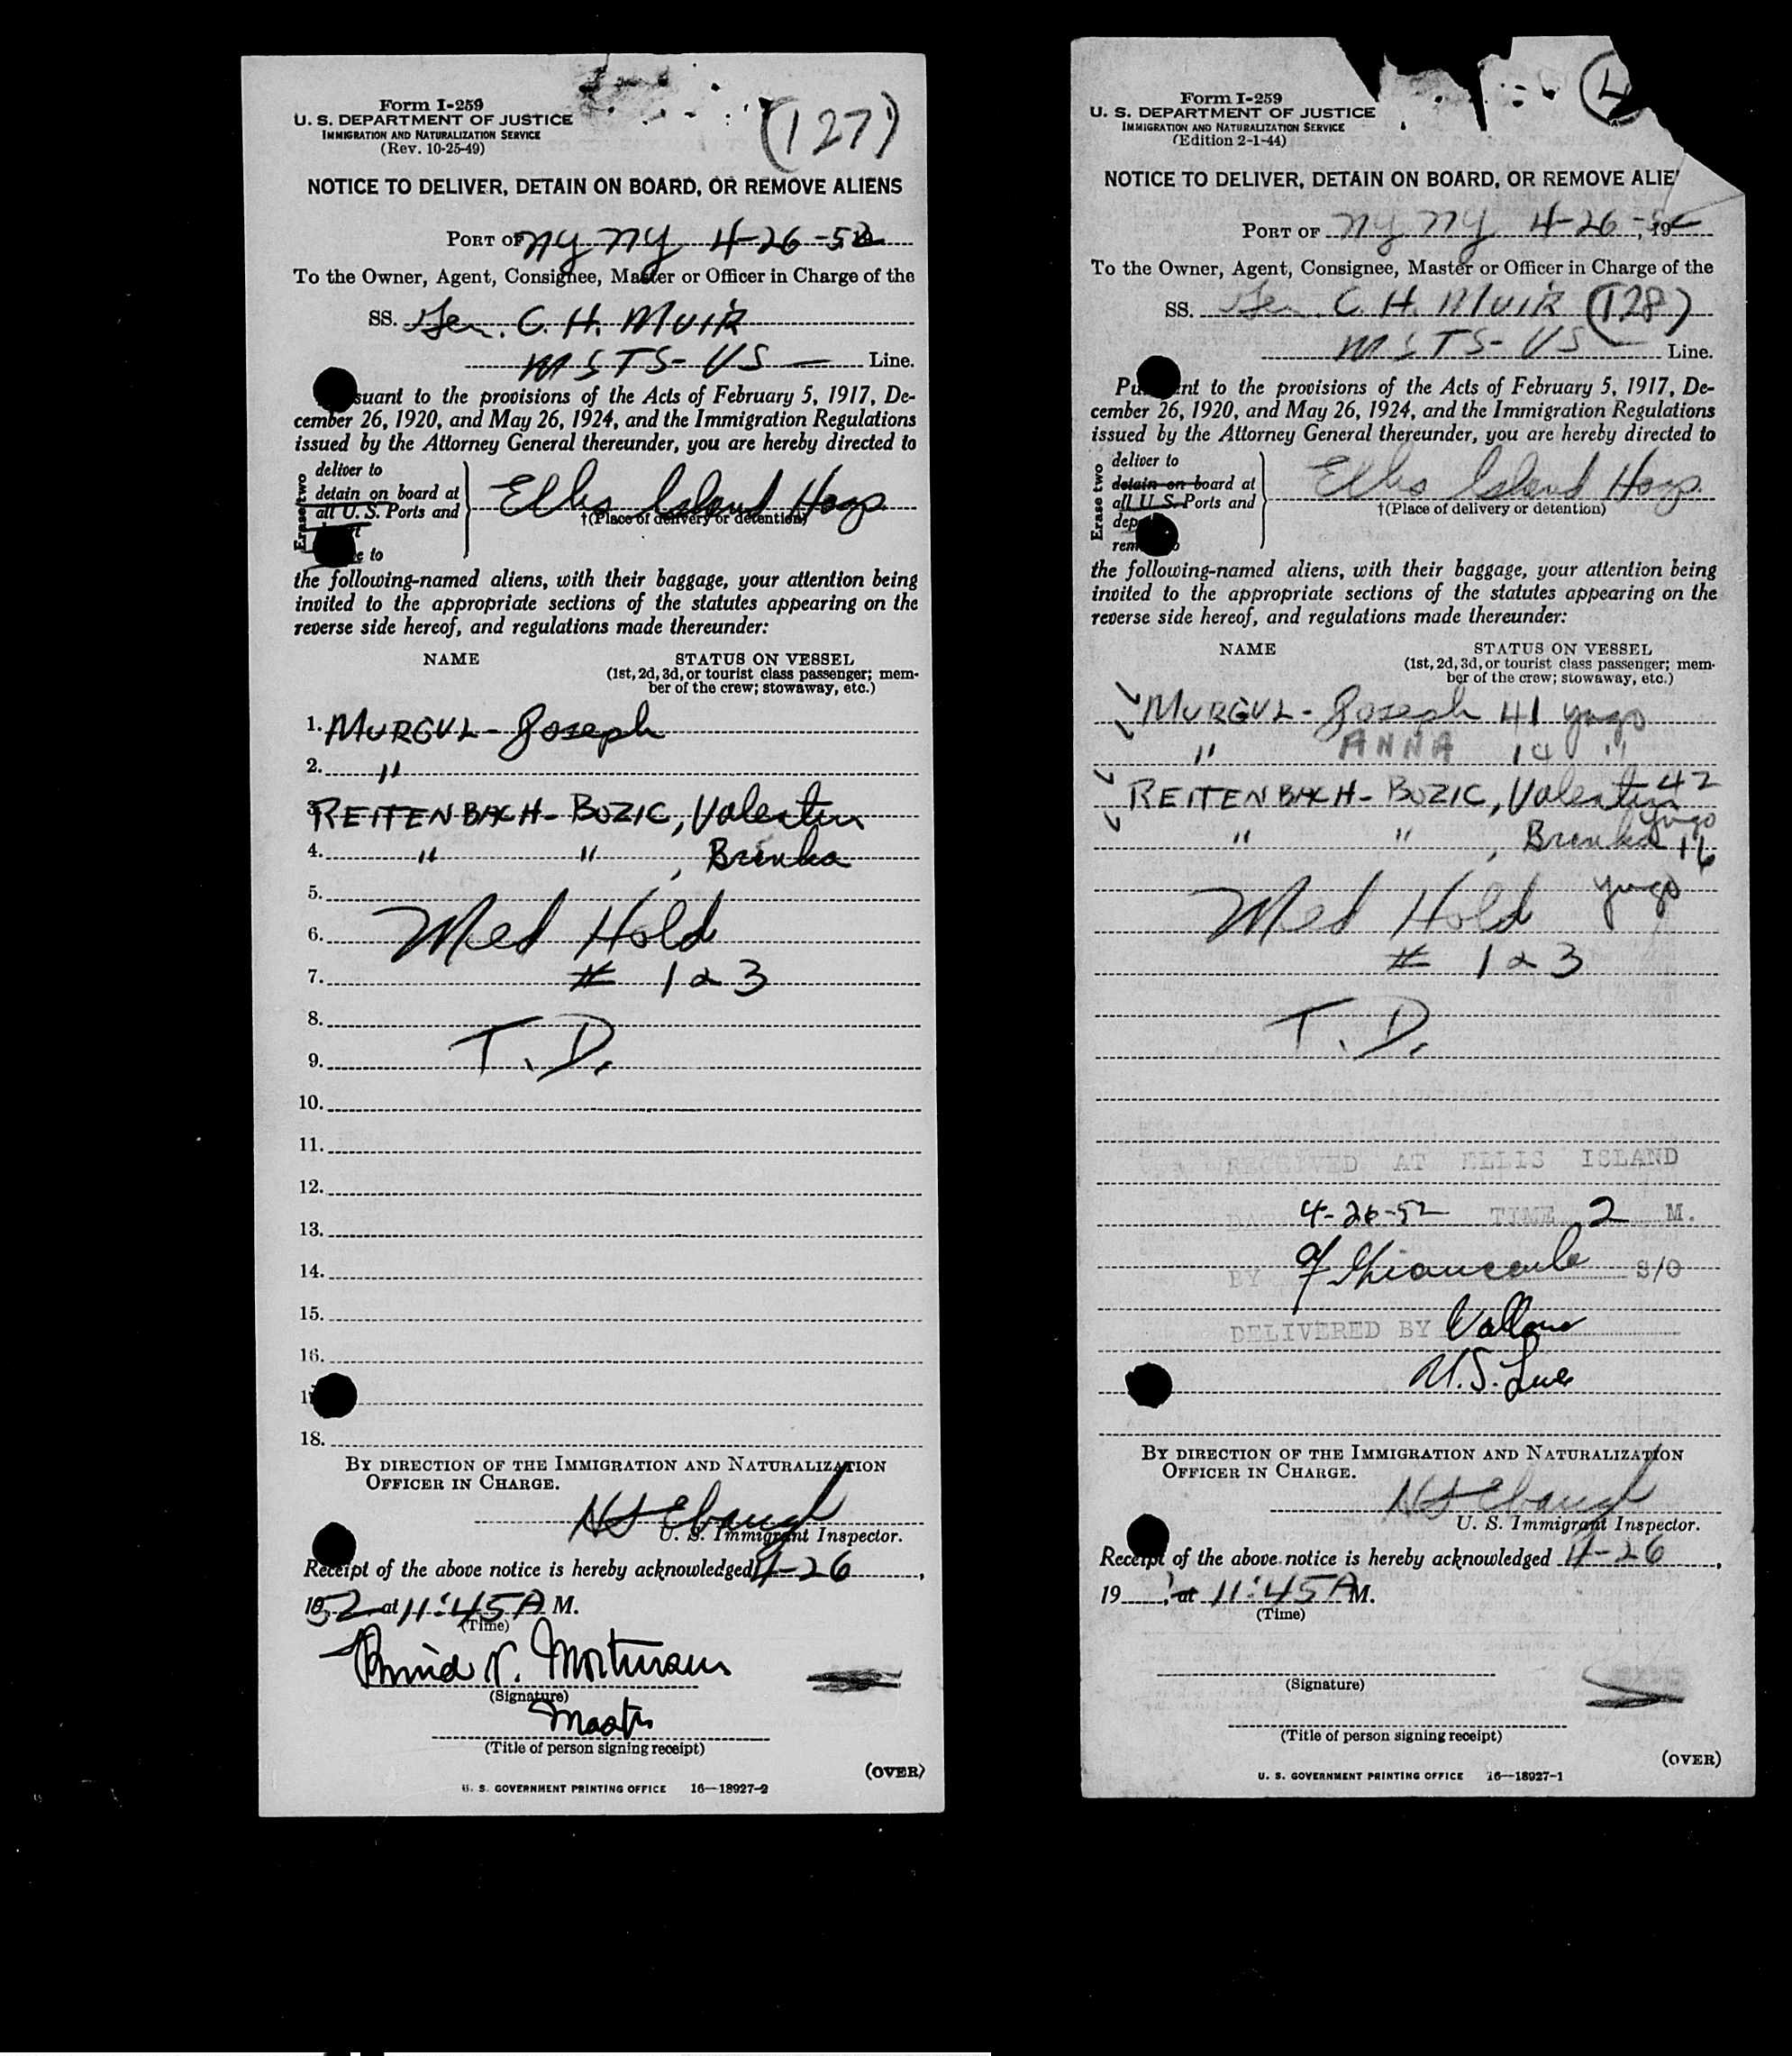 Form I-259
U. S. DEPARTMENT OF JUSTICE
IMMIGRATION AND NATURALIZATION SERVICE
(Rev. 10-25-49)
(127)
NOTICE TO DELIVER, DETAIN ON BOARD, OR REMOVE ALIENS
PORT OF NY NY 4-26-52
To the Owner, Agent, Consignee, Master or Officer in Charge of the
SS. Gen. C. H. MUIR
MSTS-US Line.
suant to the provisions of the Acts of February 5, 1917, De-
cember 26, 1920, and May 26, 1924, and the Immigration Regulations
issued by the Attorney General thereunder, you are hereby directed to
Erase two
deliver to
detain on board at
all U. S. Ports and
e to
Ellis Island Hosp.
†(Place of delivery or detention)
the following-named aliens, with their baggage, your attention being
invited to the appropriate sections of the statutes appearing on the
reverse side hereof, and regulations made thereunder:
NAME STATUS ON VESSEL
(1st, 2d, 3d, or tourist class passenger; mem-
ber of the crew; stowaway, etc.)
1. MURGUL - Joseph
2. "
3. REITENBACH - BOZIC, Valentin
4. " " , Brinka
5.
6. Med Hold
7. # 1 & 3
8.
9. T. D.
10.
11.
12.
13.
14.
15.
16.
1
18.
BY DIRECTION OF THE IMMIGRATION AND NATURALIZATION
OFFICER IN CHARGE.
U. S. Immigrant Inspector.
Receipt of the above notice is hereby acknowledged 4-26,
1952 at 11:45 A M.
(Time)
(Signature)
Master
(Title of person signing receipt)
(OVER)
U. S. GOVERNMENT PRINTING OFFICE 16—18927-2
Form I-259
U. S. DEPARTMENT OF JUSTICE
IMMIGRATION AND NATURALIZATION SERVICE
(Edition 2-1-44)
NOTICE TO DELIVER, DETAIN ON BOARD, OR REMOVE ALIE
PORT OF NY NY 4-26-, 19
To the Owner, Agent, Consignee, Master or Officer in Charge of the
SS. Gen. C. H. MUIR (128)
MSTS-US Line.
Pu nt to the provisions of the Acts of February 5, 1917, De-
cember 26, 1920, and May 26, 1924, and the Immigration Regulations
issued by the Attorney General thereunder, you are hereby directed to
Erase two
deliver to
detain on board at
all U. S. Ports and
dep
rem o
Ellis Island Hosp.
†(Place of delivery or detention)
the following-named aliens, with their baggage, your attention being
invited to the appropriate sections of the statutes appearing on the
reverse side hereof, and regulations made thereunder:
NAME STATUS ON VESSEL
(1st, 2d, 3d, or tourist class passenger; mem-
ber of the crew; stowaway, etc.)
MURGUL - Joseph 41 yugo
" ANNA 14 "
REITENBACH - BOZIC, Valentin 42
yugo
" " , Brinka 16
yugo
Med Hold
# 1 & 3
T. D.
RECEIVED AT ELLIS ISLAND
DATE 4-26-52 TIME 2 M.
BY S/O
DELIVERED BY
U.S. Lines
BY DIRECTION OF THE IMMIGRATION AND NATURALIZATION
OFFICER IN CHARGE.
U. S. Immigrant Inspector.
Receipt of the above notice is hereby acknowledged 4-26,
19 , at 11:45 A M.
(Time)
(Signature)
(Title of person signing receipt)
(OVER)
U. S. GOVERNMENT PRINTING OFFICE 16—18927-1